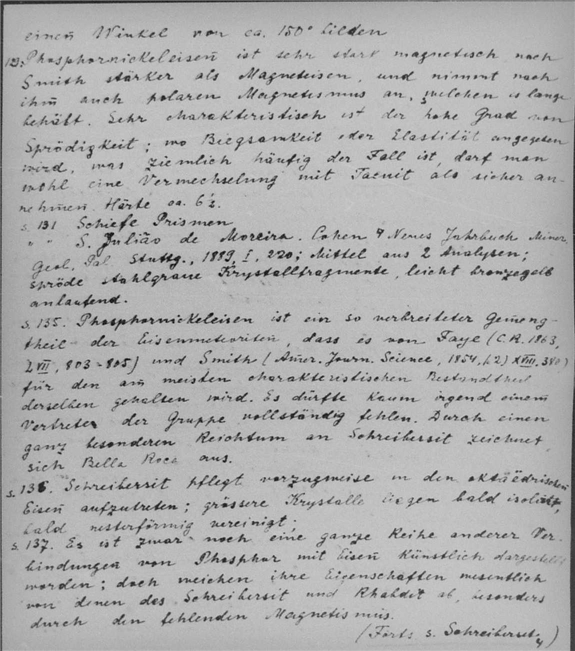 einen Winkel von ca. 150° bilden
129. Phosphornickeleisen ist sehr stark magnetisch nach
Smith stärker als Magneteisen, und nimmt nach
ihm auch polaren Magnetismus an, welchen es lange
behält. Sehr charakteristisch ist der hohe Grad von
Sprödigkeit; wo Biegsamkeit oder Elastität angegeben
wird, was ziemlich häufig der Fall ist, darf man
wohl eine Verwechselung mit Taenit als sicher an-
nehmen. Härte ca. 6½.
S. 131 Schiefe Prismen
" " S. Julião de Moreira. Cohen Neues Jahrbuch Miner.
Geol. Pal. Stuttg., 1889, I, 220; Mittel aus 2 Analysen;
spröde stahlgraue Krystallfragmente, leicht bronzegelb
anlaufend.
s. 135. Phosphornickeleisen ist ein so verbreiteter Gemeng-
theil der Eisenmeteoriten, dass es von Faye (C.R. 1863,
LVII, 803-805) und Smith (Amer. Journ. Science, 1854, (2) XVIII, 380)
für den am meisten charakteristischen Bestandtheil
derselben gehalten wird. Es dürfte kaum irgend einem
Vertreter der Gruppe vollständig fehlen. Durch einen
ganz besonderen Reichtum an Schreibersit zeichnet
sich Bella Roca aus.
s. 136. Schreibersit pflegt vorzugweise in den oktaëdrischen
Eisen aufzutreten; grössere Krystalle liegen bald isoliert,
bald nesterförmig vereinigt;
s. 137. Es ist zwar noch eine ganze Reihe anderer Ver-
bindungen von Phosphor mit Eisen künstlich dargestellt
worden; doch weichen ihre Eigenschaften wesentlich
von denen des Schreibersit und Rhabdit ab, besonders
durch den fehlenden Magnetismus.
(Forts. s. Schreibersit)